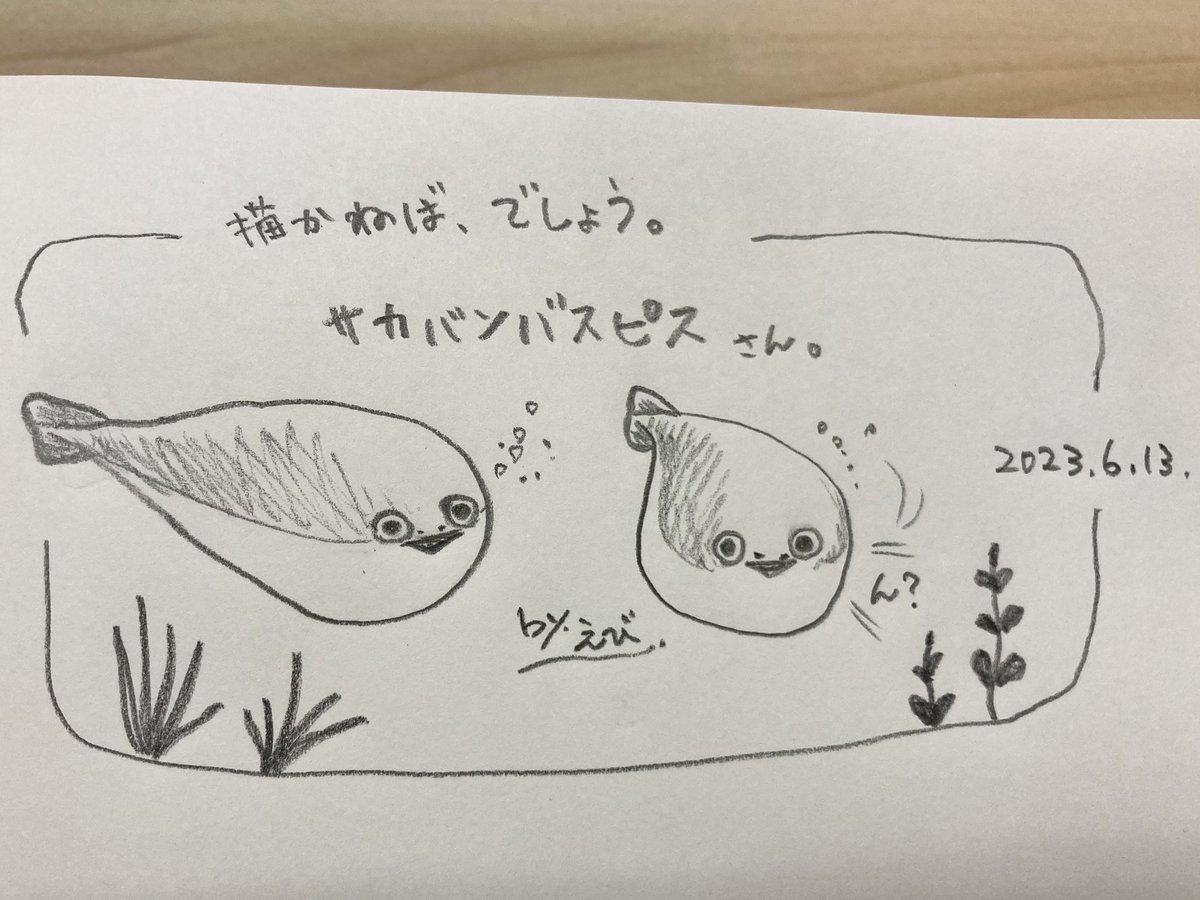 描かねば、でしょう。
サカバンバスピスさん。
2023.6.13.
ん?
by.えび.